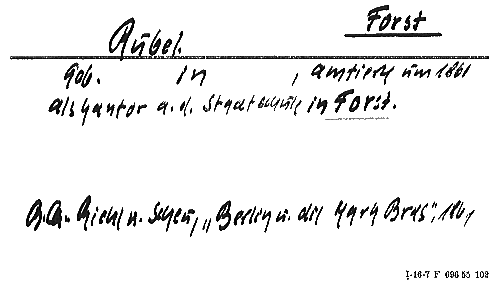 Forst
Rübel.
geb. in , amtiert um 1861
als Kantor a. d. Stadtschule in Forst.
Riehl u. Scheu, „Berlin u. die Mark Brdbg", 1861
I-16-7 F 696 55 102